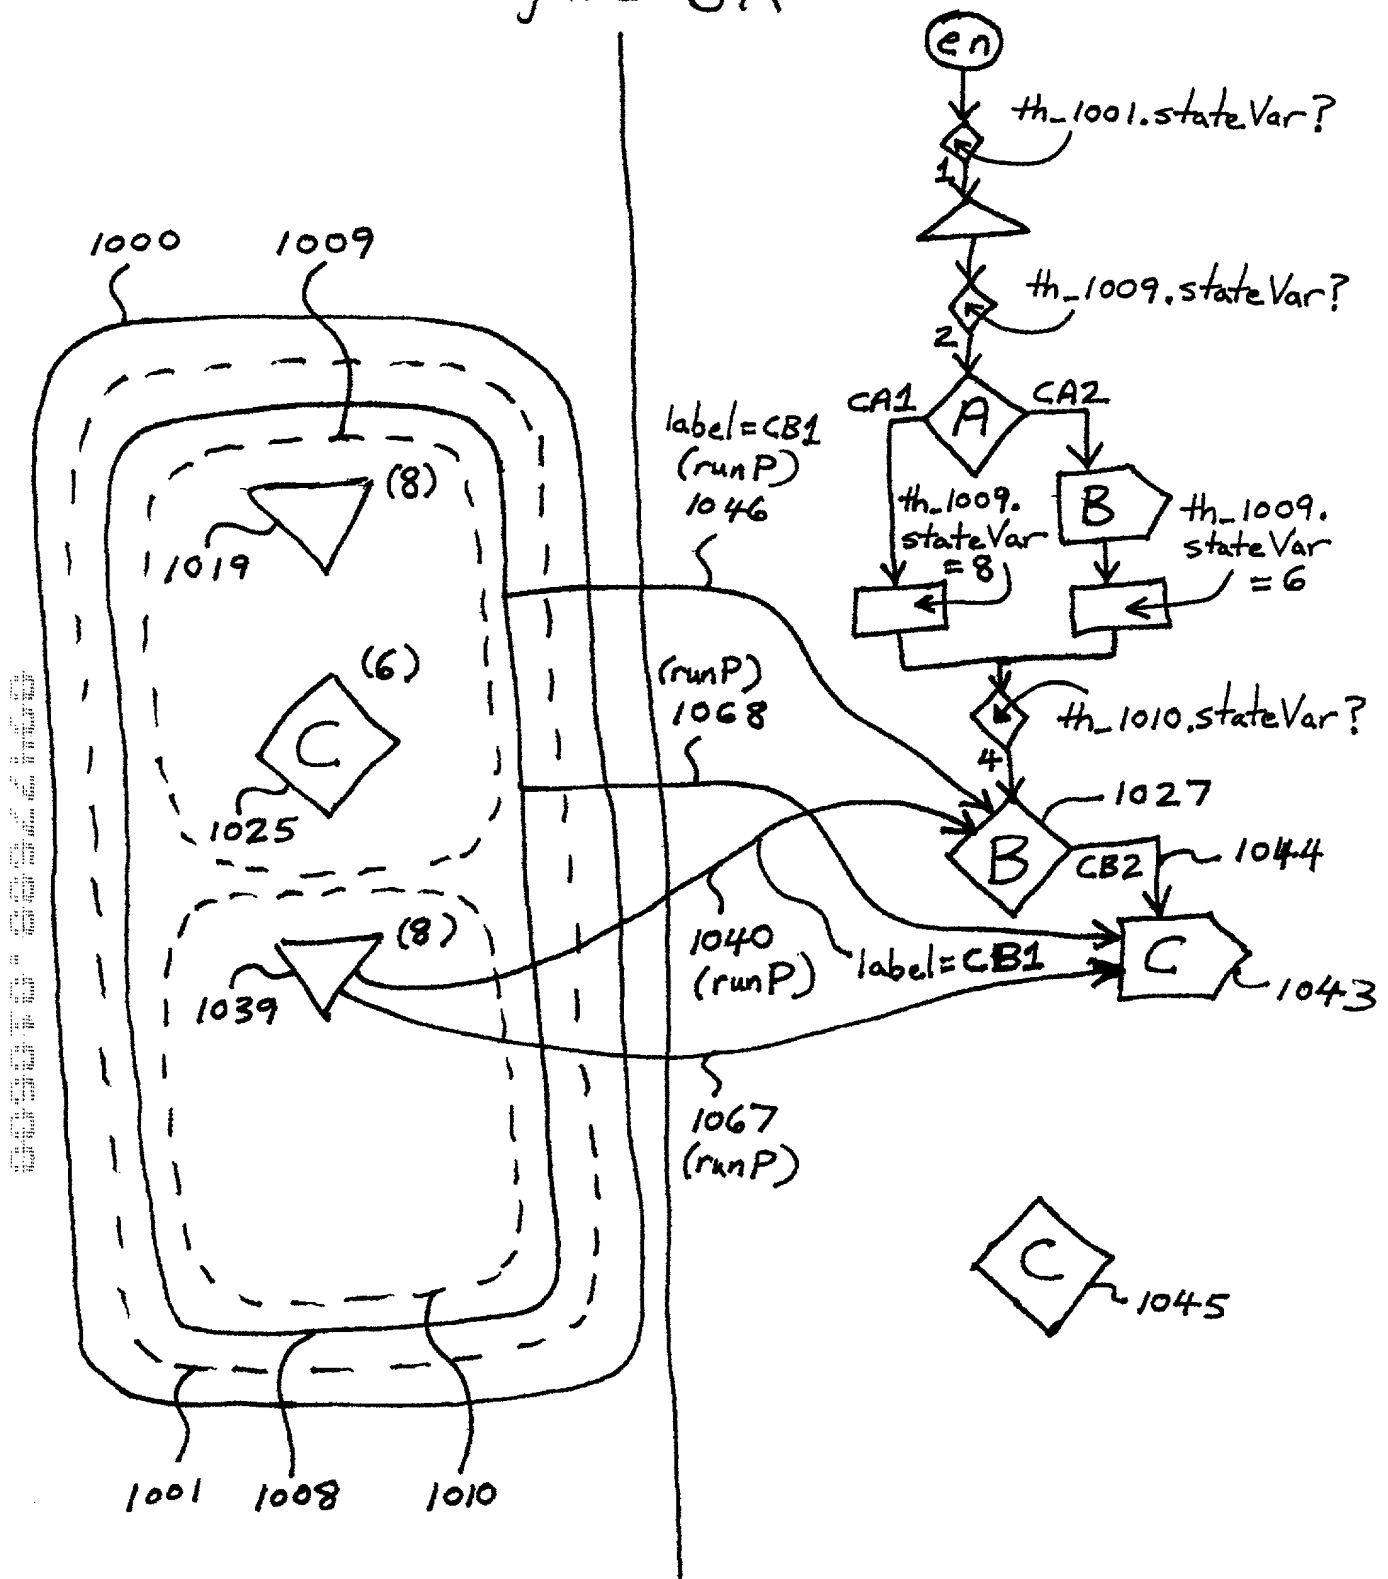 en
th_1001.stateVar?
1
1000
1009
th_1009.stateVar?
2
CA1
A
CA2
label=CB1
(runP)
1046
(8)
1019
th_1009.
stateVar
=8
B
th_1009.
stateVar
=6
(6)
C
1025
(runP)
1068
th_1010.stateVar?
4
1027
B
CB2
1044
(8)
1039
1040
(runP)
label=CB1
C
1043
1067
(runP)
C
1045
1001
1008
1010